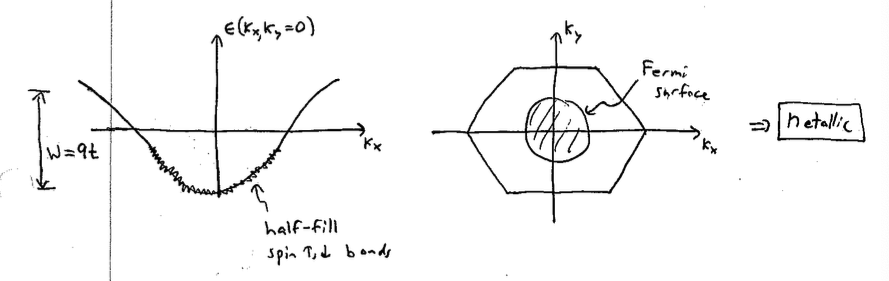 ϵ(kx,ky=0)
W=9t
kx
half-fill
spin ↑,↓ bands
ky
Fermi
surface
kx
⇒ Metallic